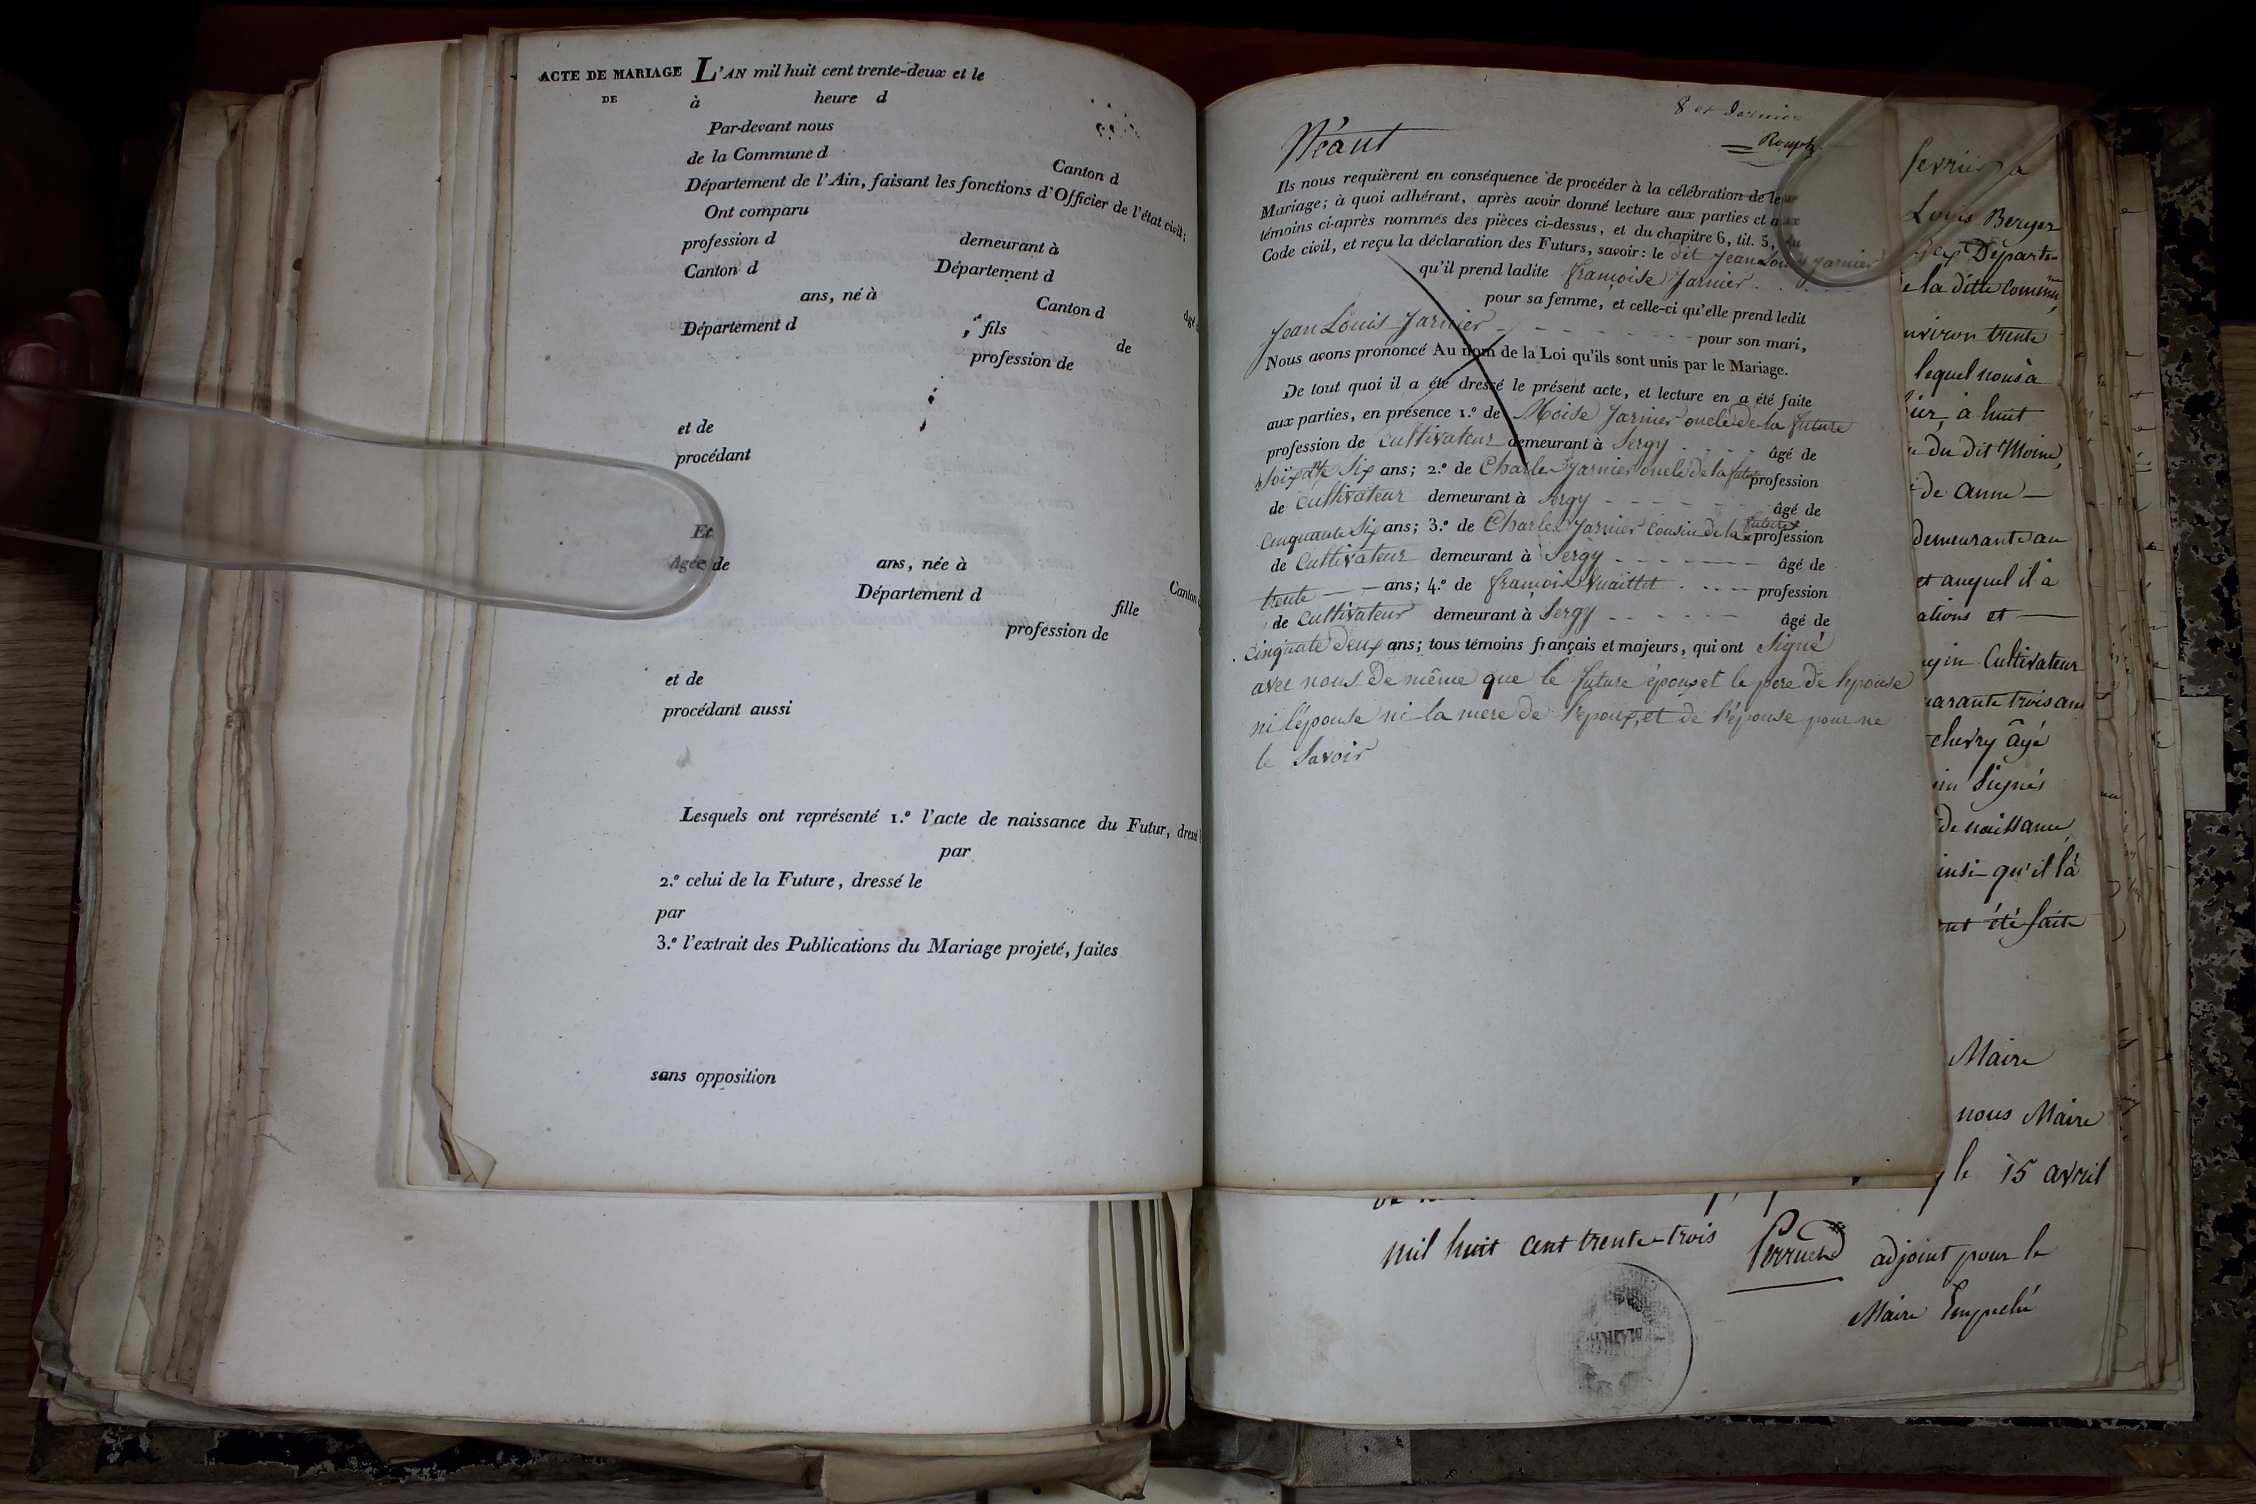 ACTE DE MARIAGE L'AN mil huit cent trente-deux et le
DE à heure d
Par-devant nous
de la Commune d Canton d
Département de l'Ain, faisant les fonctions d'Officier de l'état civil;
Ont comparu
profession d demeurant à
Canton d Département d âgé
ans, né à Canton d
Département d ; fils de
profession de
et de
procédant
Et
Agée de ans, née à Canton
Département d fille
profession de
et de
procédant aussi
Lesquels ont représenté 1.º l'acte de naissance du Futur, dressé
par
2.º celui de la Future, dressé le
par
3.º l'extrait des Publications du Mariage projeté, faites
sans opposition
8 et dernier
Néant
Ils nous requièrent en conséquence de procéder à la célébration de leur
Mariage; à quoi adhérant, après avoir donné lecture aux parties et aux
témoins ci-après nommés des pièces ci-dessus, et du chapitre 6, tit. 5, du
Code civil, et reçu la déclaration des Futurs, savoir: le dit Jean Louis Jarnier
qu'il prend ladite françoise Jarnier
pour sa femme, et celle-ci qu'elle prend ledit
Jean Louis Jarnier pour son mari,
Nous avons prononcé Au nom de la Loi qu'ils sont unis par le Mariage.
De tout quoi il a été dressé le présent acte, et lecture en a été faite
aux parties, en présence 1.º de Moïse Jarnier oncle de la future
profession de Cultivateur demeurant à Sergy âgé de
Soixte Six ans; 2.º de Charles Jarnier oncle de la future profession
de Cultivateur demeurant à Sergy âgé de
Cinquante Six ans; 3.º de Charles Jarnier cousin de la future profession
de Cultivateur demeurant à Sergy âgé de
trente ans; 4.º de françois Vuaillet profession
de Cultivateur demeurant à Sergy âgé de
Cinquate Deux ans; tous témoins français et majeurs, qui ont Signé
avec nous De même que le future époux et le pere de l'epouse
ni l'épouse ni la mere de l'epoux, et de l'épouse pour ne
le Savoir
fevrier à
Louis Berger
Gex Départe-
de la ditte commune
environ trente
lequel nous à
à huit
du dit Moine,
de anne
demeurants au
et auquel il à
ations et
Cultivateur
quarante trois ans
chevry âgé
Signés
de naissance,
ainsi qu'il l'à
ont été faite
Maire
nous Maire
le 15 avril
mil huit cent trente-trois Perruchod adjoint pour le
Maire Empeché
MAIRIE